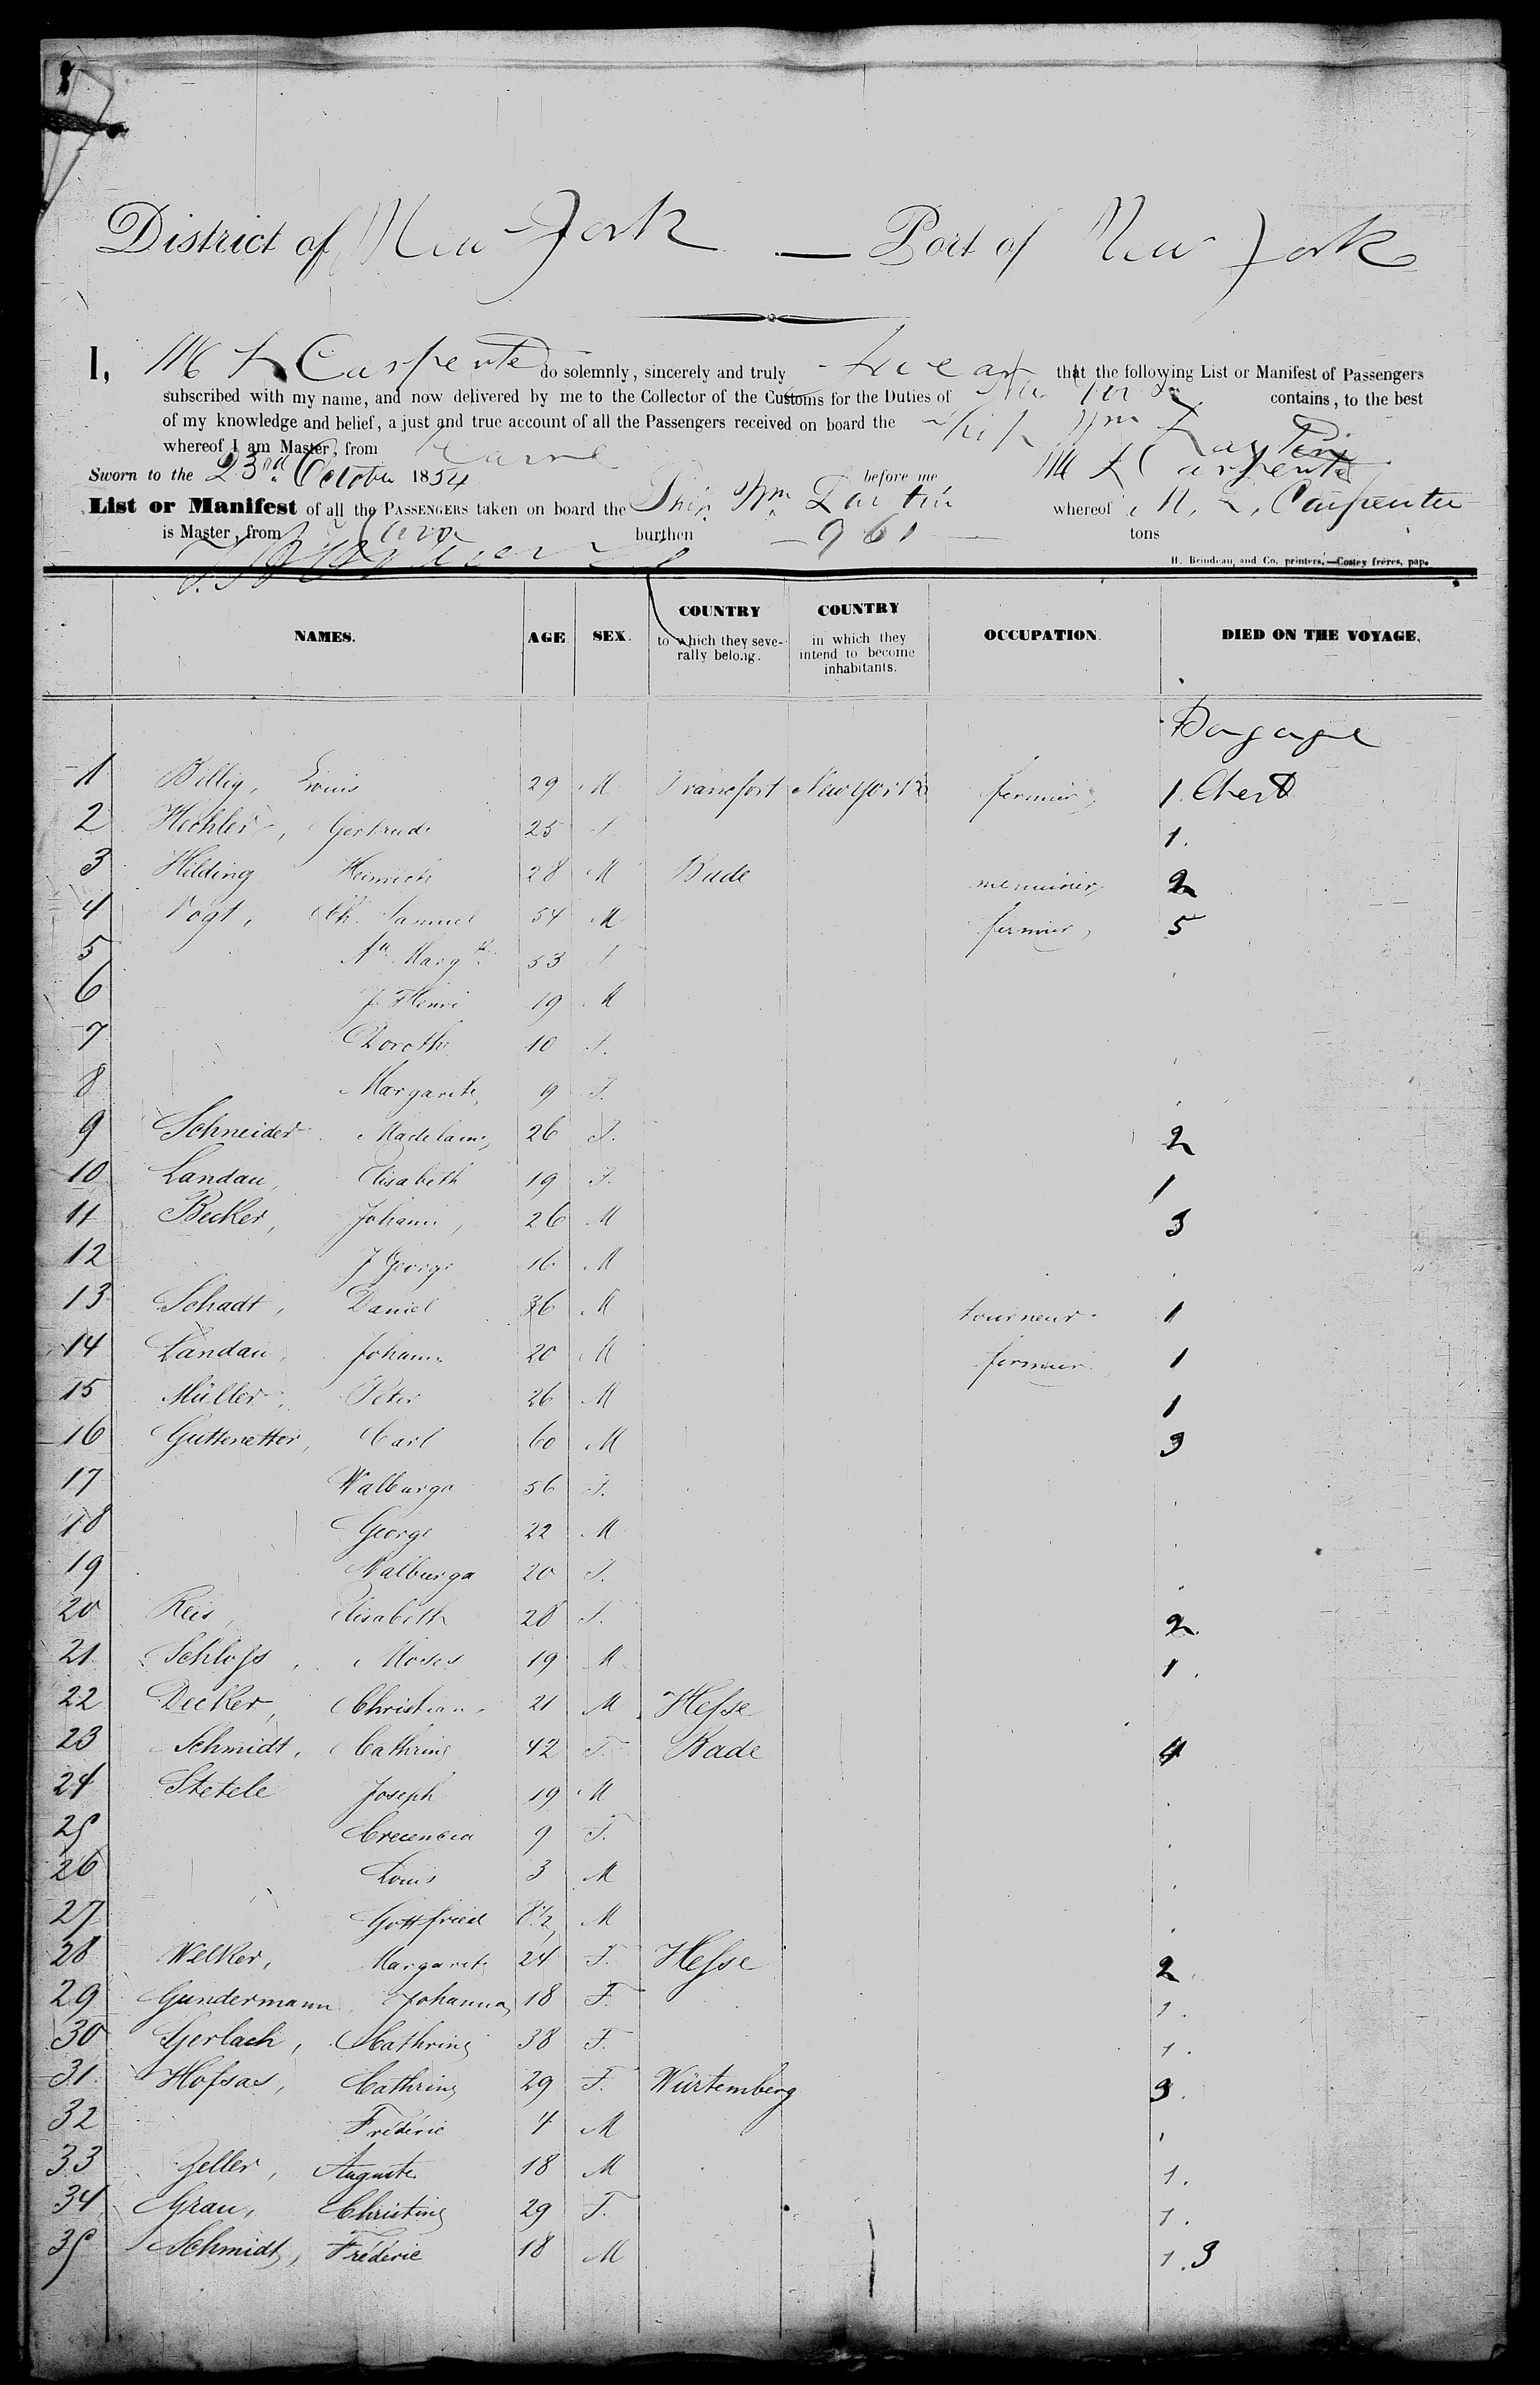 District of New York — Port of New York
I, M L Carpenter do solemnly, sincerely and truly swear that the following List or Manifest of Passengers
subscribed with my name, and now delivered by me to the Collector of the Customs for the Duties of New York contains, to the best
of my knowledge and belief, a just and true account of all the Passengers received on board the Ship Wm
whereof I am Master, from Havre
Sworn to the 23rd October 1854 before me M L Carpenter
List or Manifest of all the PASSENGERS taken on board the Ship Wm whereof M. L. Carpenter
is Master, from burthen 961 tons
H. Brindeau and Co, printers.—Costey frères, pap.
NAMES. AGE. SEX. COUNTRY to which they severally belong. COUNTRY in which they intend to become inhabitants. OCCUPATION. DIED ON THE VOYAGE.
Bagage
1 Billig, Louis 29 M Francfort New York fermier, 1 Chest
2 Hechler, Gertrude 25 F 1.
3 Hilding Heinrich 28 M Bade menuisier, 2
4 Vogt, Ch. Samuel 54 M fermier, 5
5 Aa Margte 53 F
6 J. Henri 19 M
7 Dorothe 10 F.
8 Margarite 9 F.
9 Schneider Madelaine, 26 F. 2
10 Landau, Elisabeth 19 F. 1
11 Becker, Johann, 26 M 3
12 J George 16 M
13 Schadt, Daniel 36 M tourneur 1
14 Landau, Johann 20 M fermier 1
15 Müller, Peter 26 M 1
16 Guttenetter, Carl 60 M 3
17 Walburga 56 F.
18 George 22 M
19 Walburga 20 F.
20 Reis, Elisabeth 28 F. 2.
21 Schloss, Moses 19 M 1.
22 Decker, Christian 21 M Hesse
23 Schmidt, Cathrine 42 F. Bade 4
24 Stetele Joseph 19 M
25 Crecencia 9 F.
26 Louis 3 M
27 Gottfried M
28 Welker, Margarite 24 F. Hesse 2
29 Gundermann Johanna, 18 F. 1.
30 Gerlach, Cathrine 38 F. 1.
31 Hofsas, Cathrine 29 F. Würtemberg 3.
32 Frédéric 4 M
33 Zeller, Auguste 18 M 1.
34 Grau, Christine 29 F. 1.
35 Schmidt, Frédéric 18 M 1.3